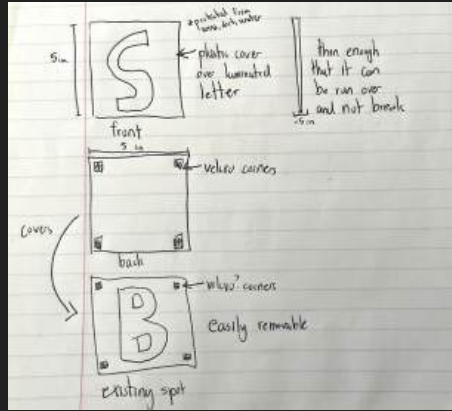 *protected from
water
5in
S
plastic cover
over laminated
letter
thin enough
that it can
be run over
and not break
.5in
front
5 in
velcro corners
covers
back
velcro corners
B
easily removable
existing spot